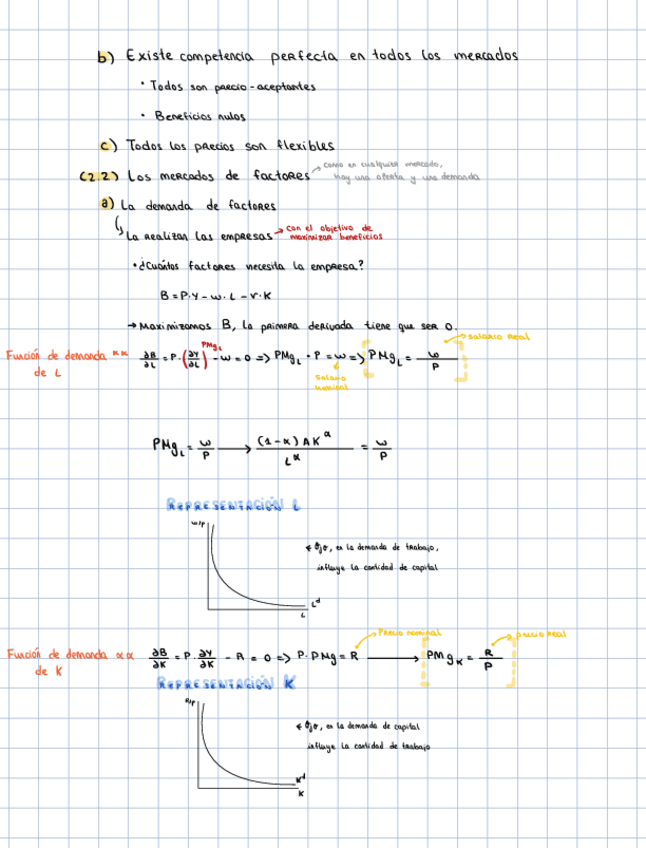 b) Existe competencia perfecta en todos los mercados
· Todos son precio-aceptantes
· Beneficios nulos
c) Todos los precios son flexibles
(2.2) Los mercados de factores → como en cualquier mercado, hay una oferta y una demanda
a) La demanda de factores
La realizan las empresas → con el objetivo de maximizar beneficios
· ¿Cuántos factores necesita la empresa?
B = P·Y - w·L - r·K
→ Maximizamos B, la primera derivada tiene que ser 0.
salario real
PMgL
Función de demanda de L ** ∂B/∂L = P·(∂Y/∂L) - w = 0 => PMgL · P = w => PMgL = w/P
salario nominal
PMgL = w/P → (1-α)AK^α / L^α = w/P
REPRESENTACIÓN L
w/P
* Ojo, en la demanda de trabajo,
influye la cantidad de capital
L^d
L
Precio nominal
precio real
Función de demanda de K ** ∂B/∂K = P·∂Y/∂K - R = 0 => P·PMg = R → PMgK = R/P
REPRESENTACIÓN K
R/P
* Ojo, en la demanda de capital
influye la cantidad de trabajo
K^d
K